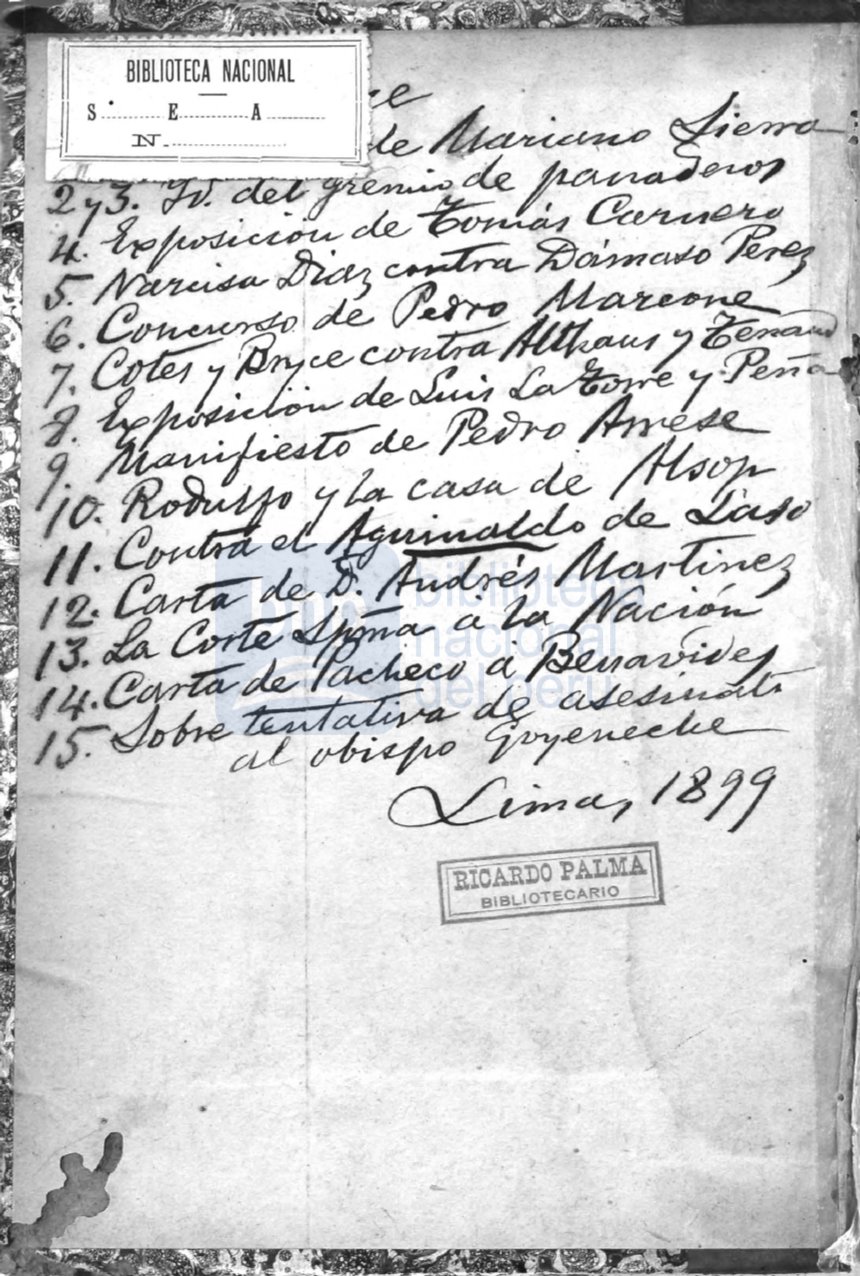 BIBLIOTECA NACIONAL
S. E A
N.
de Mariano Sierra
2 y 3. Id. del gremio de panaderos
4. Exposición de Tomás Carnero
5. Narcisa Diaz contra Dámaso Perez
6. Concurso de Pedro Marcone
7. Cotes y Bryce contra Althaus y Tenaud
8. Exposición de Luis La Torre y Peña
9. Manifiesto de Pedro Arrese
10. Rodulfo y la casa de Alsop
11. Contra el Aguinaldo de Laso
12. Carta de D. Andrés Martinez
13. La Corte Spma a la Nación
14. Carta de Pacheco á Benavides
15. Sobre tentativa de asesinato
al obispo Goyeneche
Lima, 1899
RICARDO PALMA
BIBLIOTECARIO
bnp
biblioteca
nacional
del perú